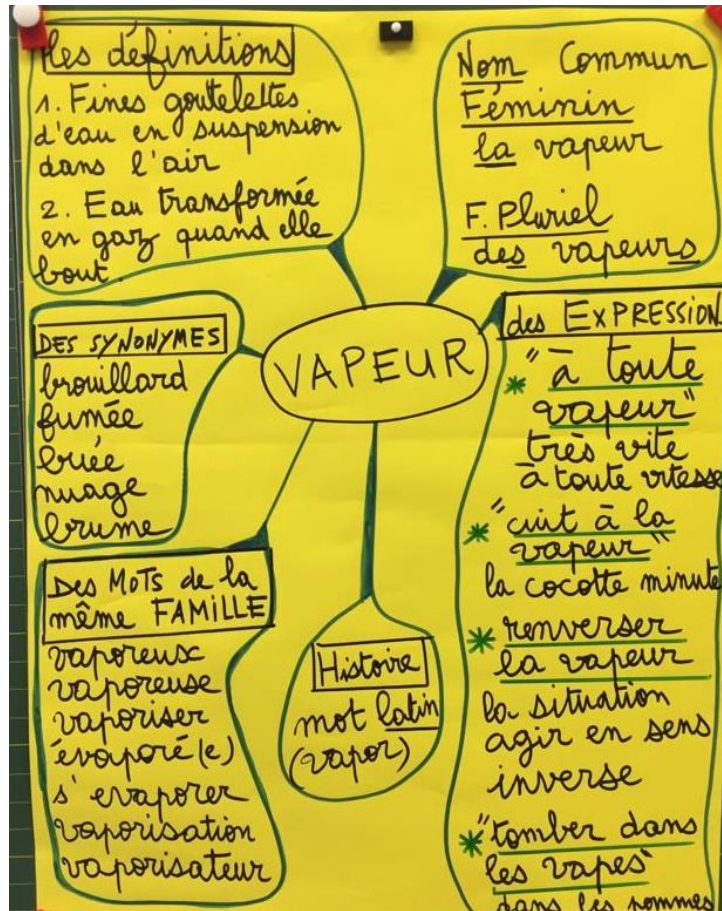 les définitions
1. Fines goutelettes
d'eau en suspension
dans l'air
2. Eau transformée
en gaz quand elle
bout.
Nom Commun
Féminin
la vapeur
F. Pluriel
des vapeurs
VAPEUR
DES SYNONYMES
brouillard
fumée
buée
nuage
brume
des EXPRESSION
* "à toute
vapeur"
très vite
à toute vitesse
* "cuit à la
vapeur"
la cocotte minute
* renverser
la vapeur
la situation
agir en sens
inverse
* "tomber dans
les vapes"
dans les pommes
Des MoTs de la
même FAMiLLE
vaporeux
vaporeuse
vaporiser
évaporé(e)
s'evaporer
vaporisation
vaporisateur
Histoire
mot latin
(vapor)